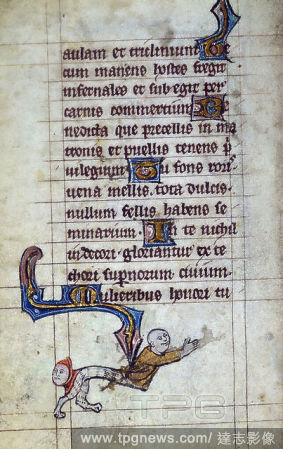 aulam et triclinium De
cum manens hostes fregit
infernales et subegit per
carnis commertium Be
nedicta que precellis in ma
tronis et puellis tenens p
uilegium Tu fons rori
uena mellis tota dulcis
nullum fellis habens se
minarium In te nichil
indecori gloriantur ex te
chori supnorum ciuium
Mulieribus honori tu
TPG
www.tpgnews.com/ 達志影像